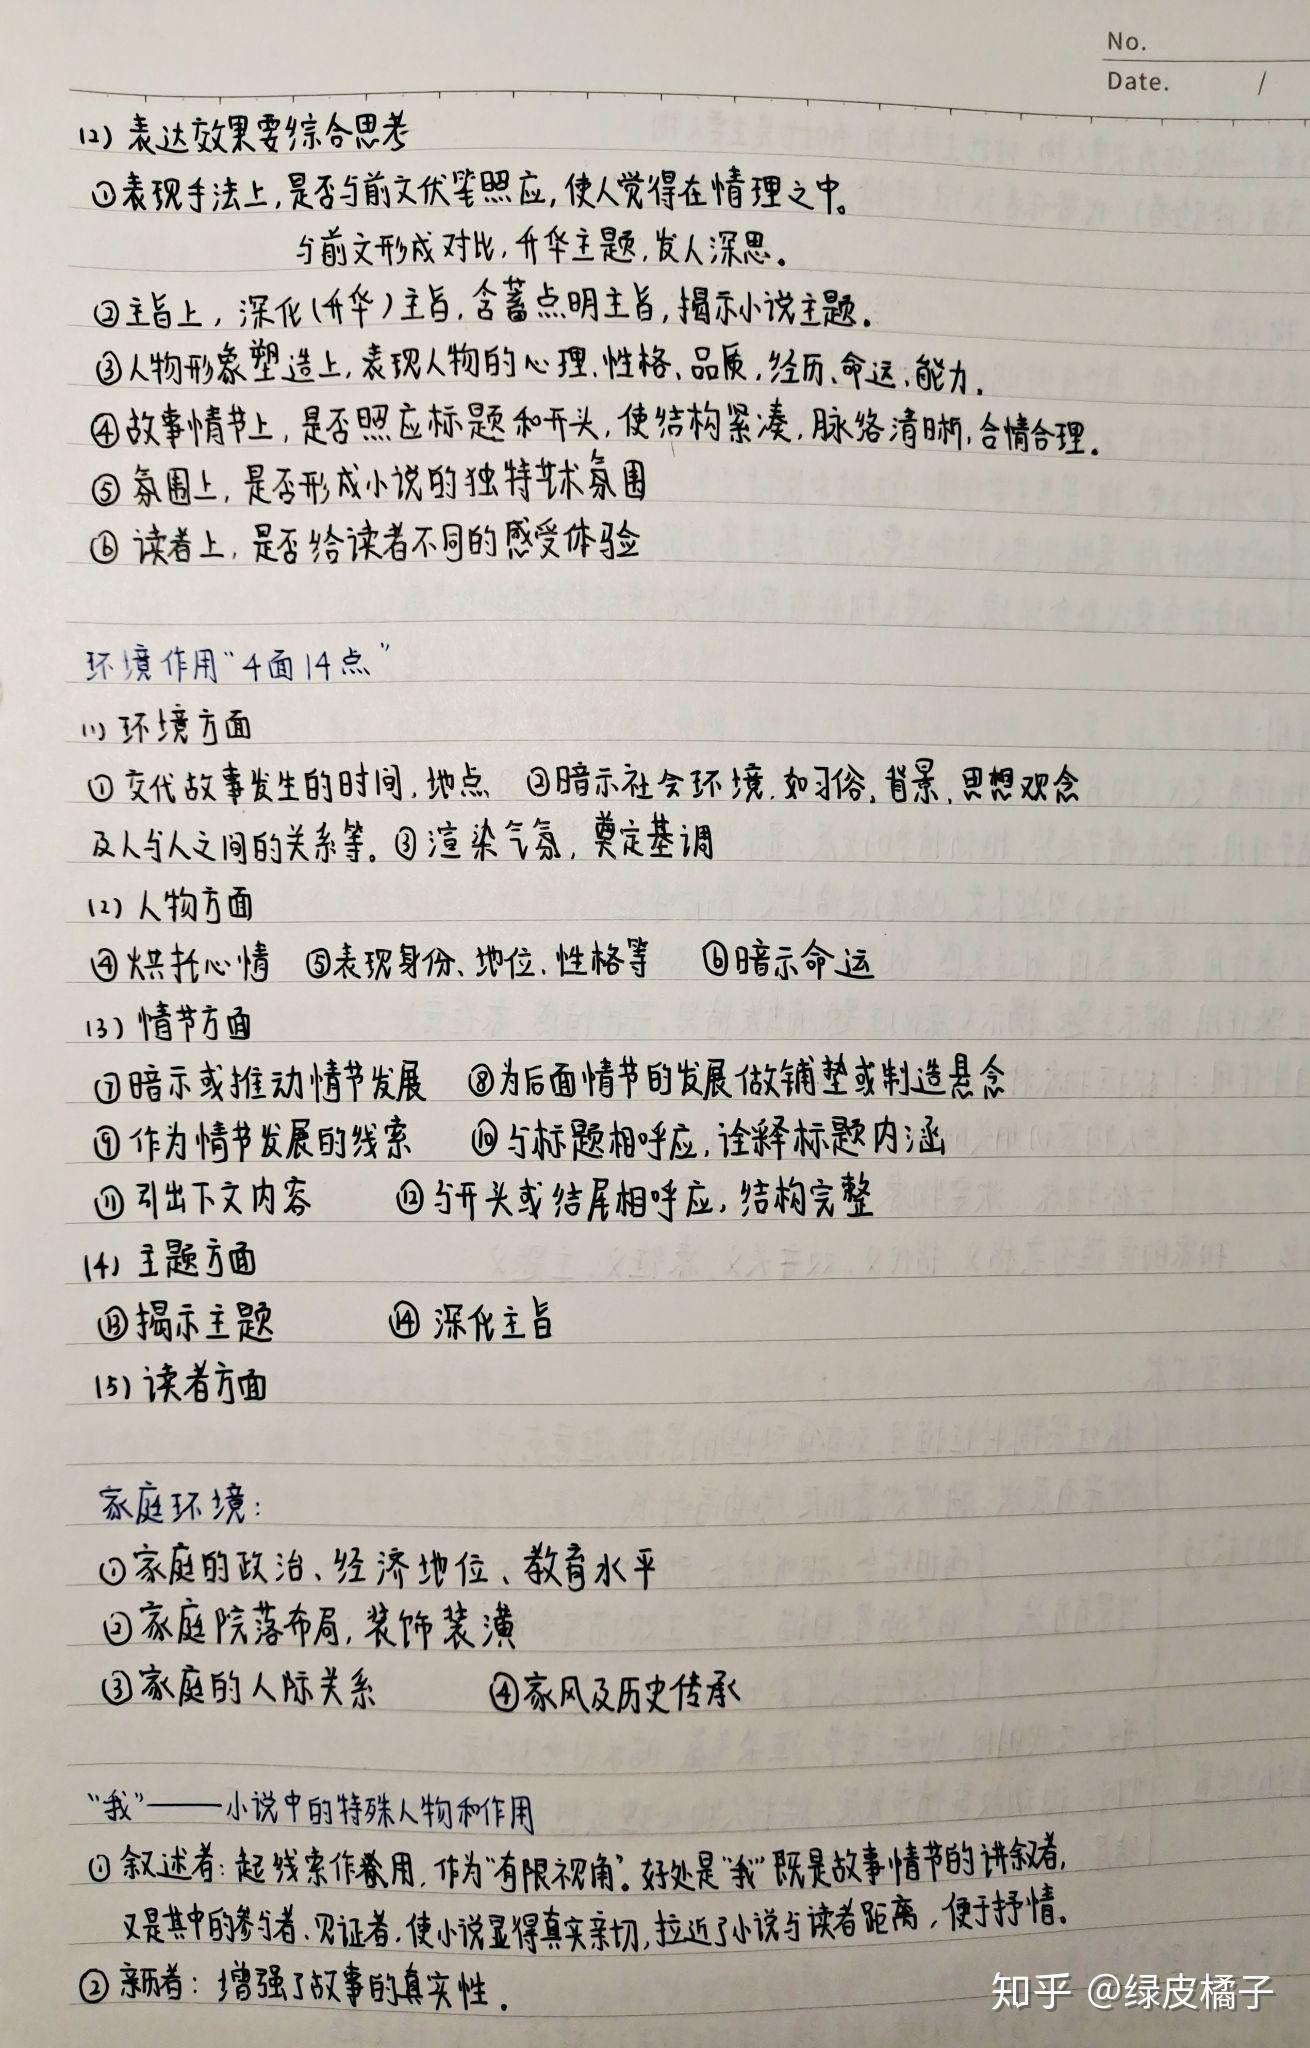 No.
Date. /
(2) 表达效果要综合思考
①表现手法上,是否与前文伏笔照应,使人觉得在情理之中。
与前文形成对比,升华主题,发人深思。
②主旨上,深化(升华)主旨,含蓄点明主旨,揭示小说主题。
③人物形象塑造上,表现人物的心理、性格、品质,经历、命运、能力.
④故事情节上,是否照应标题和开头,使结构紧凑,脉络清晰,合情合理.
⑤ 氛围上,是否形成小说的独特艺术氛围
⑥ 读者上,是否给读者不同的感受体验
环境作用“4面14点”
(1) 环境方面
① 交代故事发生的时间,地点 ②暗示社会环境,如习俗,背景,思想观念
及人与人之间的关系等。③渲染气氛,奠定基调
(2) 人物方面
④烘托心情 ⑤表现身份、地位、性格等 ⑥暗示命运
(3) 情节方面
⑦暗示或推动情节发展 ⑧为后面情节的发展做铺垫或制造悬念
⑨作为情节发展的线索 ⑩与标题相呼应,诠释标题内涵
⑪引出下文内容 ⑫与开头或结尾相呼应,结构完整
(4) 主题方面
⑬揭示主题 ⑭ 深化主旨
(5) 读者方面
家庭环境:
①家庭的政治、经济地位、教育水平
②家庭院落布局,装饰装潢
③家庭的人际关系 ④家风及历史传承
“我”——小说中的特殊人物和作用
①叙述者:起线索作用,作为“有限视角”。好处是“我”既是故事情节的讲叙者,
又是其中的参与者、见证者,使小说显得真实亲切,拉近了小说与读者距离,便于抒情。
②亲历者:增强了故事的真实性.
知乎 @绿皮橘子